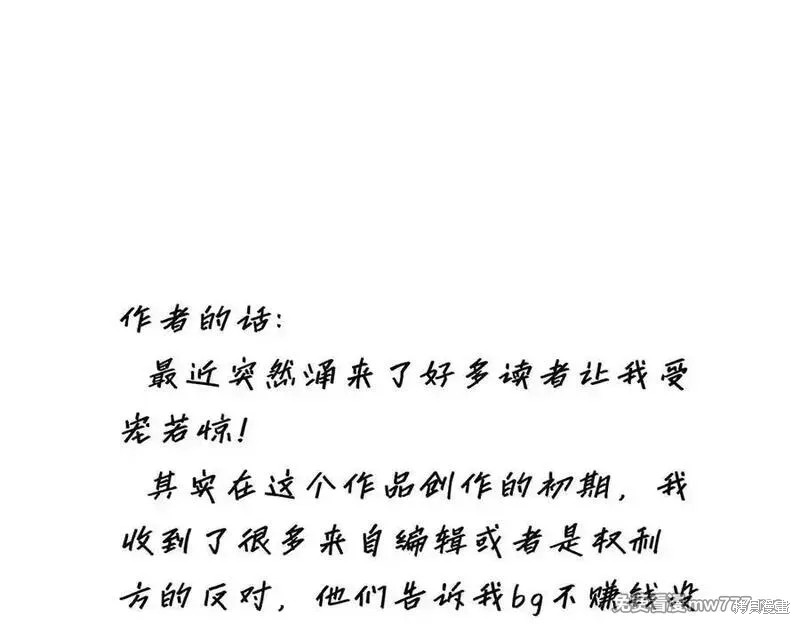 作者的话:
最近突然涌来了好多读者让我受
宠若惊!
其实在这个作品创作的初期,我
收到了很多来自编辑或者是权利
方的反对,他们告诉我bg不赚钱没